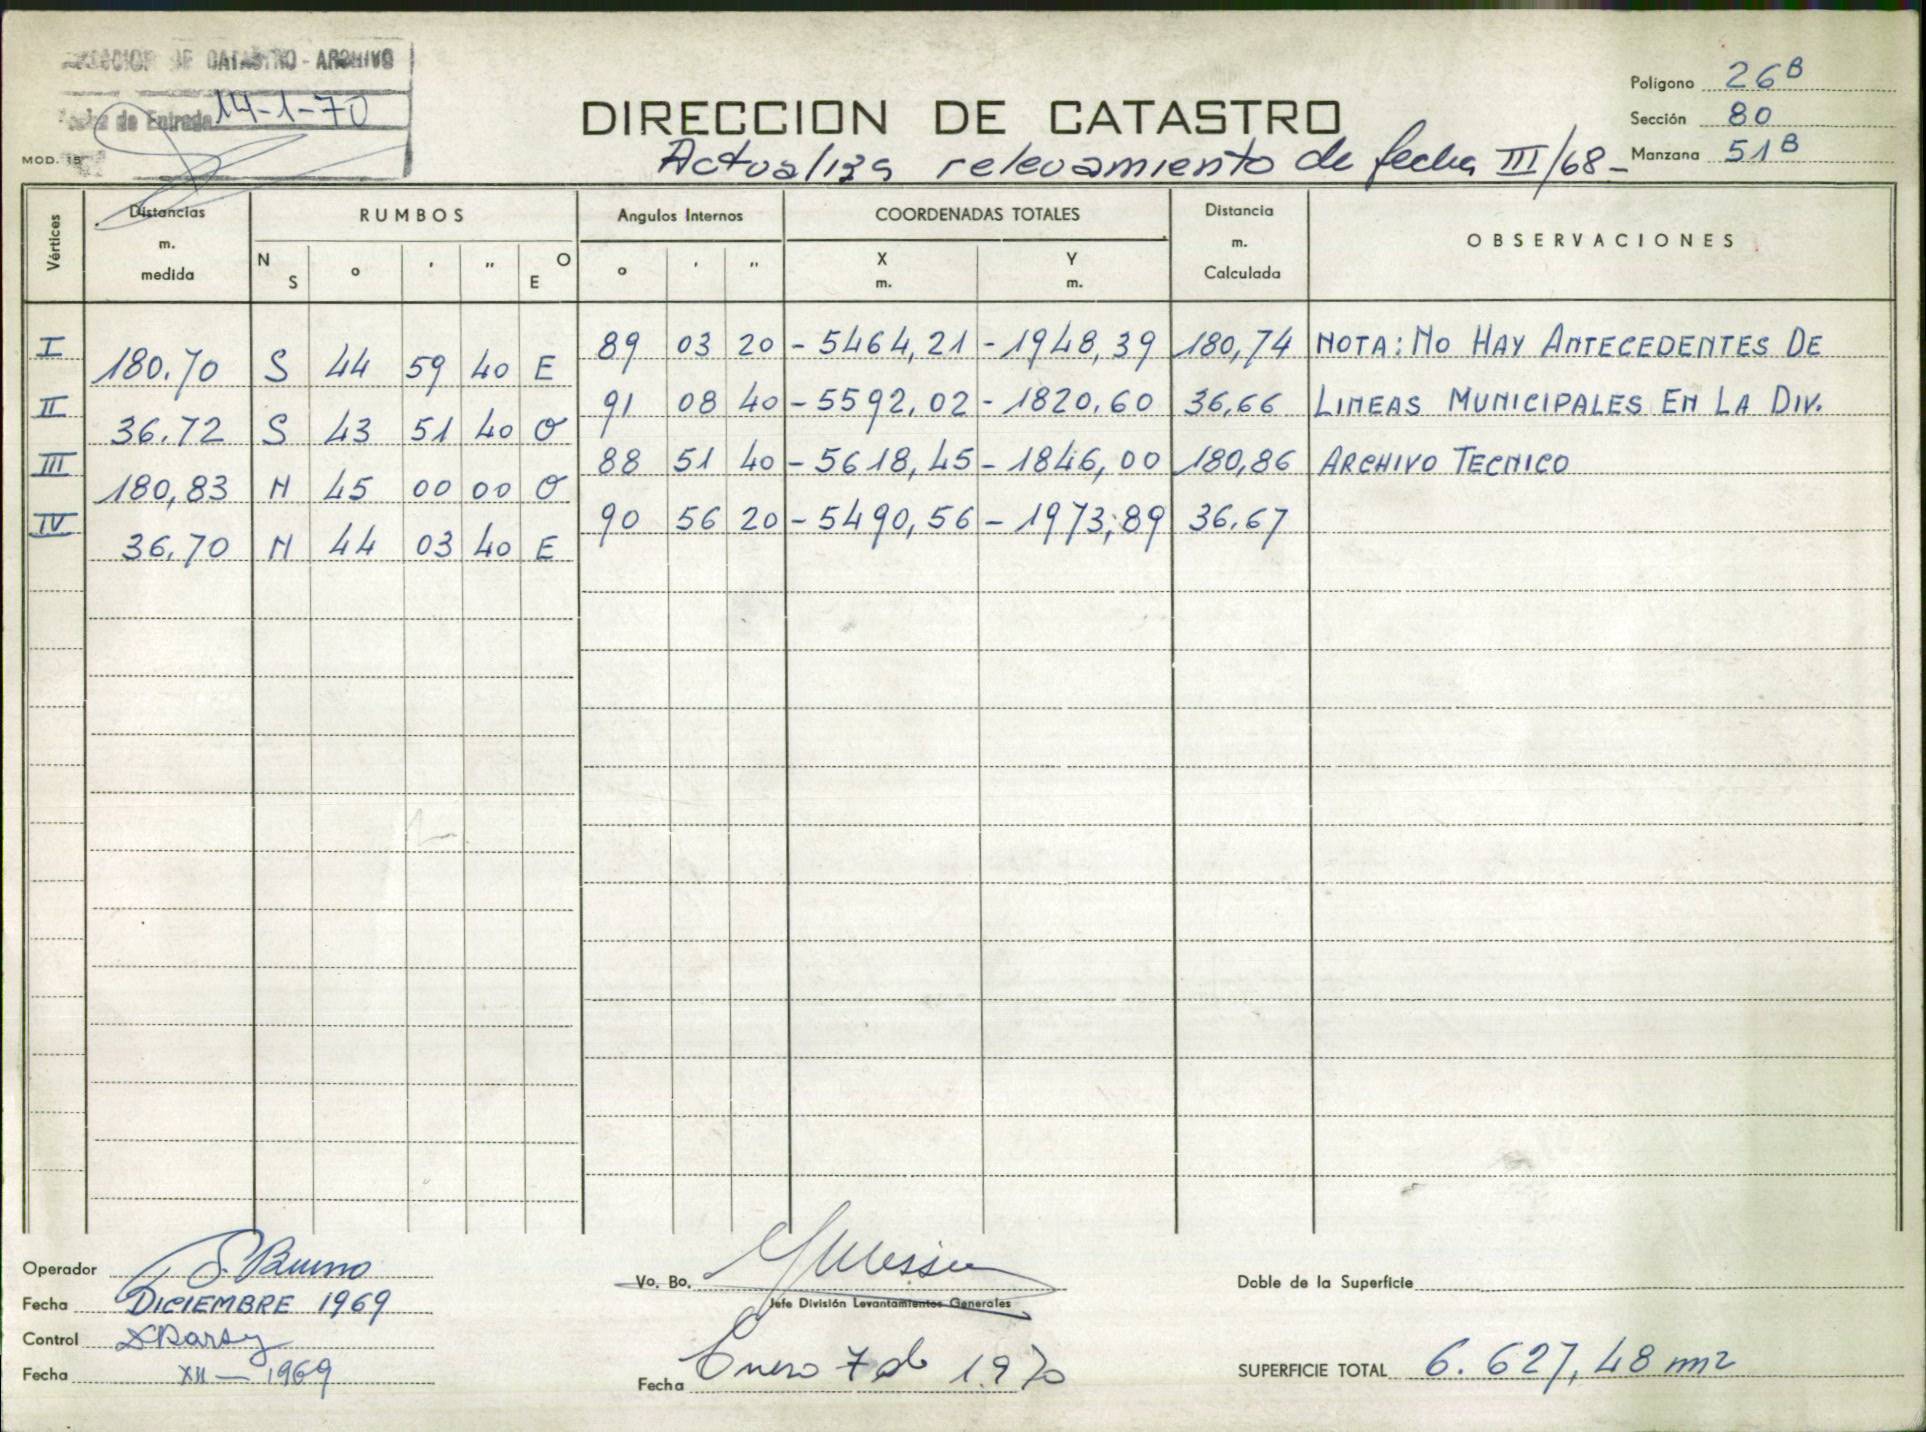 DIRECCION DE CATASTRO - ARCHIVO
Fecha de Entrada 14-1-70
MOD. 15
DIRECCION DE CATASTRO
Actualiza relevamiento de fecha III/68-
Polígono 26B
Sección 80
Manzana 51B
Vértices
Distancias m. medida
RUMBOS
N S ° ' " O E
Angulos Internos
° ' "
COORDENADAS TOTALES
X m. Y m.
Distancia m. Calculada
OBSERVACIONES
I 89 03 20 -5464,21 -1948,39 180,74 NOTA: NO HAY ANTECEDENTES DE
180.70 S 44 59 40 E
II 91 08 40 -5592,02 -1820,60 36,66 LINEAS MUNICIPALES EN LA DIV.
36.72 S 43 51 40 O
III 88 51 40 -5618,45 -1846,00 180,86 ARCHIVO TECNICO
180,83 N 45 00 00 O
IV 90 56 20 -5490,56 -1973,89 36,67
36.70 N 44 03 40 E
Operador S. Bruno
Fecha DICIEMBRE 1969
Control
Fecha XII - 1969
Vo. Bo.
Jefe División Levantamientos Generales
Fecha Enero 7 de 1970
Doble de la Superficie
SUPERFICIE TOTAL 6.627,48 m2